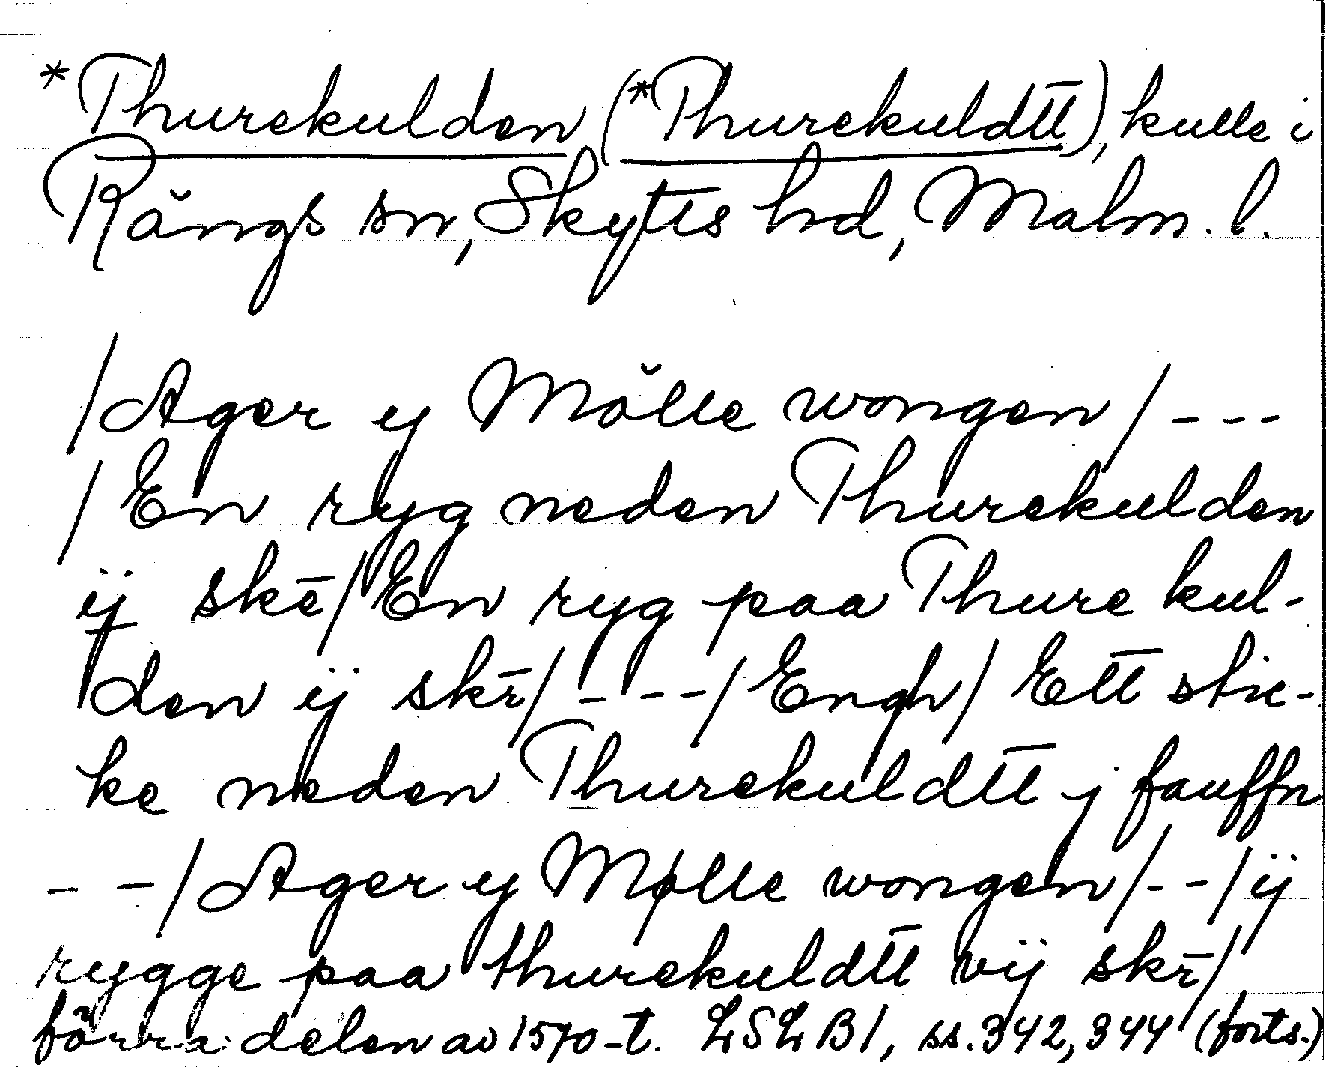 *Thurekulden (*Thurekuldtt), kulle i
Rängs sn, Skytts hd, Malm. l.
/Ager y Mölle wongen/ - - -
/En ryg neden Thurekulden
ij skē/En ryg paa Thure kul-
den ij skr̄/ - - - /Engh/ Ett stic-
ke neden Thurekuldtt j fauffn
- - /Ager y Mølle wongen/ - - /ij
rygge paa thurekuldtt vij skr̄/
förra delen av 1570-t. LSLB1, ss. 342, 344 (forts.)